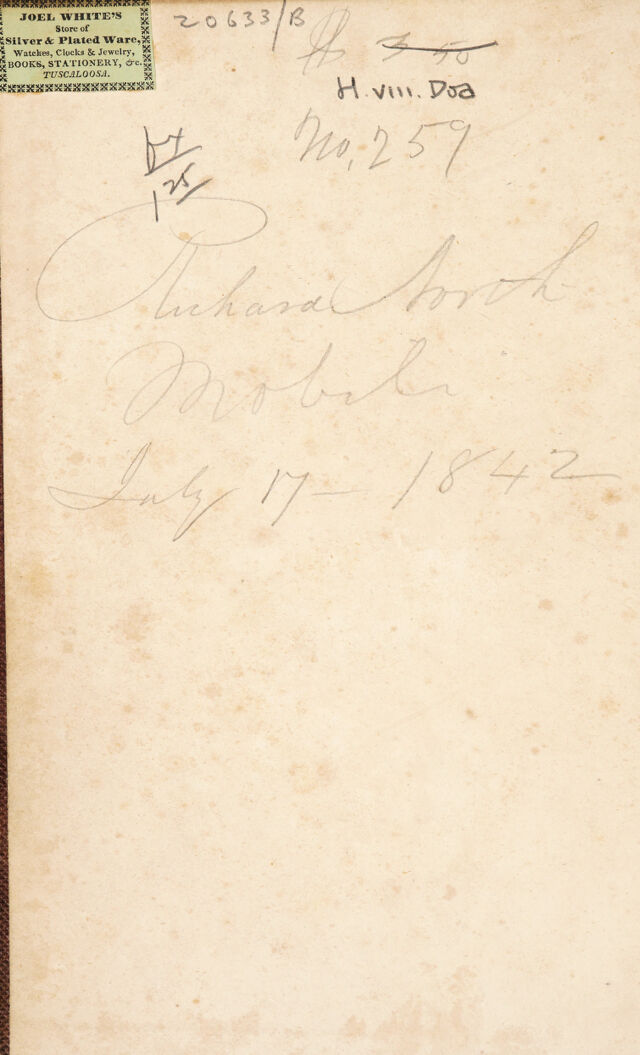 JOEL WHITE'S
Store of
Silver & Plated Ware,
Watches, Clocks & Jewelry,
BOOKS, STATIONERY, &c.
TUSCALOOSA.
20633/B
$ 3 50
H.VIII. Doa
No, 259
1 25
Richard North
Mobile
July 17 - 1842